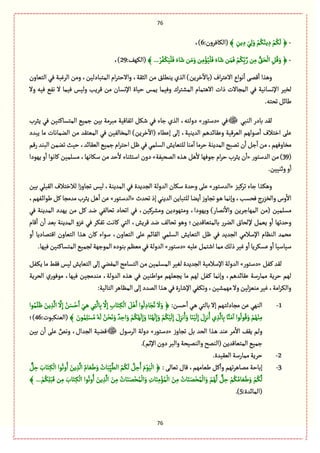 76
- ﴿ لَكُمْ دِينُكُمْ وَلِيَ دِينِ ﴾ (الكافرون:6)،
- ﴿ وَقُلِ الْحَقُّ مِن رَّبِّكُمْ فَمَن شَاءَ فَلْيُؤْمِن وَمَن شَاءَ فَلْيَكْفُرْ ... ﴾ (الكهف:29)،
وهذا أقصى أنواع الاعتراف (بالآخرين) الذي ينطلق من الثقة، والاحترام المتبادلين، ومن الرغبة في التعاون
لخير الإنسانية في المجالات ذات الاهتمام المشترك وفيما يمس حياة الإنسان من قريب وليس فيما لا نفع فيه ولا
طائل تحته.
لقد بادر النبي ﷺ في «دستور» دولته، الذي جاء في شكل اتفاقية مبرمة بين جميع المتساكنين في يثرب
على اختلاف أصولهم العرقية وعقائدهم الدينية، إلى إعطاء (الآخرين) المخالفين في المعتقد من الضمانات ما يبدد
مخاوفهم، من أجل أن تصبح المدينة حرما آمنا للتعايش السلمي في ظل احترام جميع العقائد، حيث تضمن البند رقم
(39) من الدستور «أن يثرب حرام جوفها لأهل هذه الصحيفة» دون استثناء لأحد من سكانها، مسلمين كانوا أو يهودا
أو وثنيين.
وهكذا جاء تركيز «الدستور» على وحدة سكان الدولة الجديدة في المدينة، ليس تجاوزا للاختلاف القبلي بين
الأوس والخزرج فحسب، وإنما هو تجاوز أيضا للتباين الديني إذ تحدث «الدستور» عن أهل يثرب مدمجا كل طوائفهم،
مسلمين (من المهاجرين والأنصار) ويهودا، ومتهودين ومشركين، في اتحاد تحالفي ضد كل من يهدد المدينة في
وحدتها أو يعمل لإلحاق الضرر بالمتعاقدين؛ وهو تحالف ضد قريش، التي كانت تفكر في غزو المدينة بعد أن أقام
محمد النظام الإسلامي الجديد في ظل التعايش السلمي القائم على التعاون، سواء كان هذا التعاون اقتصاديا أو
سياسيا أو عسكريا أو غير ذلك مما اشتمل عليه «دستور» الدولة في معظم بنوده الموجهة لجميع المتساكنين فيها.
لقد كفل «دستور» الدولة الإسلامية الجديدة لغير المسلمين من التسامح المفضي إلى التعايش ليس فقط ما يكفل
لهم حرية ممارسة عقائدهم، وإنما كفل لهم ما يجعلهم مواطنين في هذه الدولة، مندمجين فيها، موفوري الحرية
والكرامة، غير منعزلين ولا مهمشين، وتكفي الإشارة في هذا الصدد إلى المظاهر التالية:
1- النهي عن مجادلتهم إلا بالتي هي أحسن: ﴿ وَلَا تُجَادِلُوا أَهْلَ الْكِتَابِ إِلَّا بِالَّتِي هِيَ أَحْسَنُ إِلَّا الَّذِينَ ظَلَمُوا
مِنْهُمْ وَقُولُوا آمَنَّا بِالَّذِي أُنزِلَ إِلَيْنَا وَأُنزِلَ إِلَيْكُمْ وَإِلَٰهُنَا وَإِلَٰهُكُمْ وَاحِدٌ وَنَحْنُ لَهُ مُسْلِمُونَ ﴾ (العنكبوت:46)؛
ولم يقف الأمر عند هذا الحد بل تجاوز «دستور» دولة الرسول ﷺ قضية الجدال، ونص على أن بين
جميع المتعاقدين (النصح والنصيحة والبر دون الإثم).
2- حرية ممارسة العقيدة.
3- إباحة مصاهرتهم وأكل طعامهم، قال تعالى : ﴿ الْيَوْمَ أُحِلَّ لَكُمُ الطَّيِّبَاتُ وَطَعَامُ الَّذِينَ أُوتُوا الْكِتَابَ حِلٌّ
لَّكُمْ وَطَعَامُكُمْ حِلٌّ لَّهُمْ وَالْمُحْصَنَاتُ مِنَ الْمُؤْمِنَاتِ وَالْمُحْصَنَاتُ مِنَ الَّذِينَ أُوتُوا الْكِتَابَ مِن قَبْلِكُمْ ... ﴾
(المائدة:5).
76